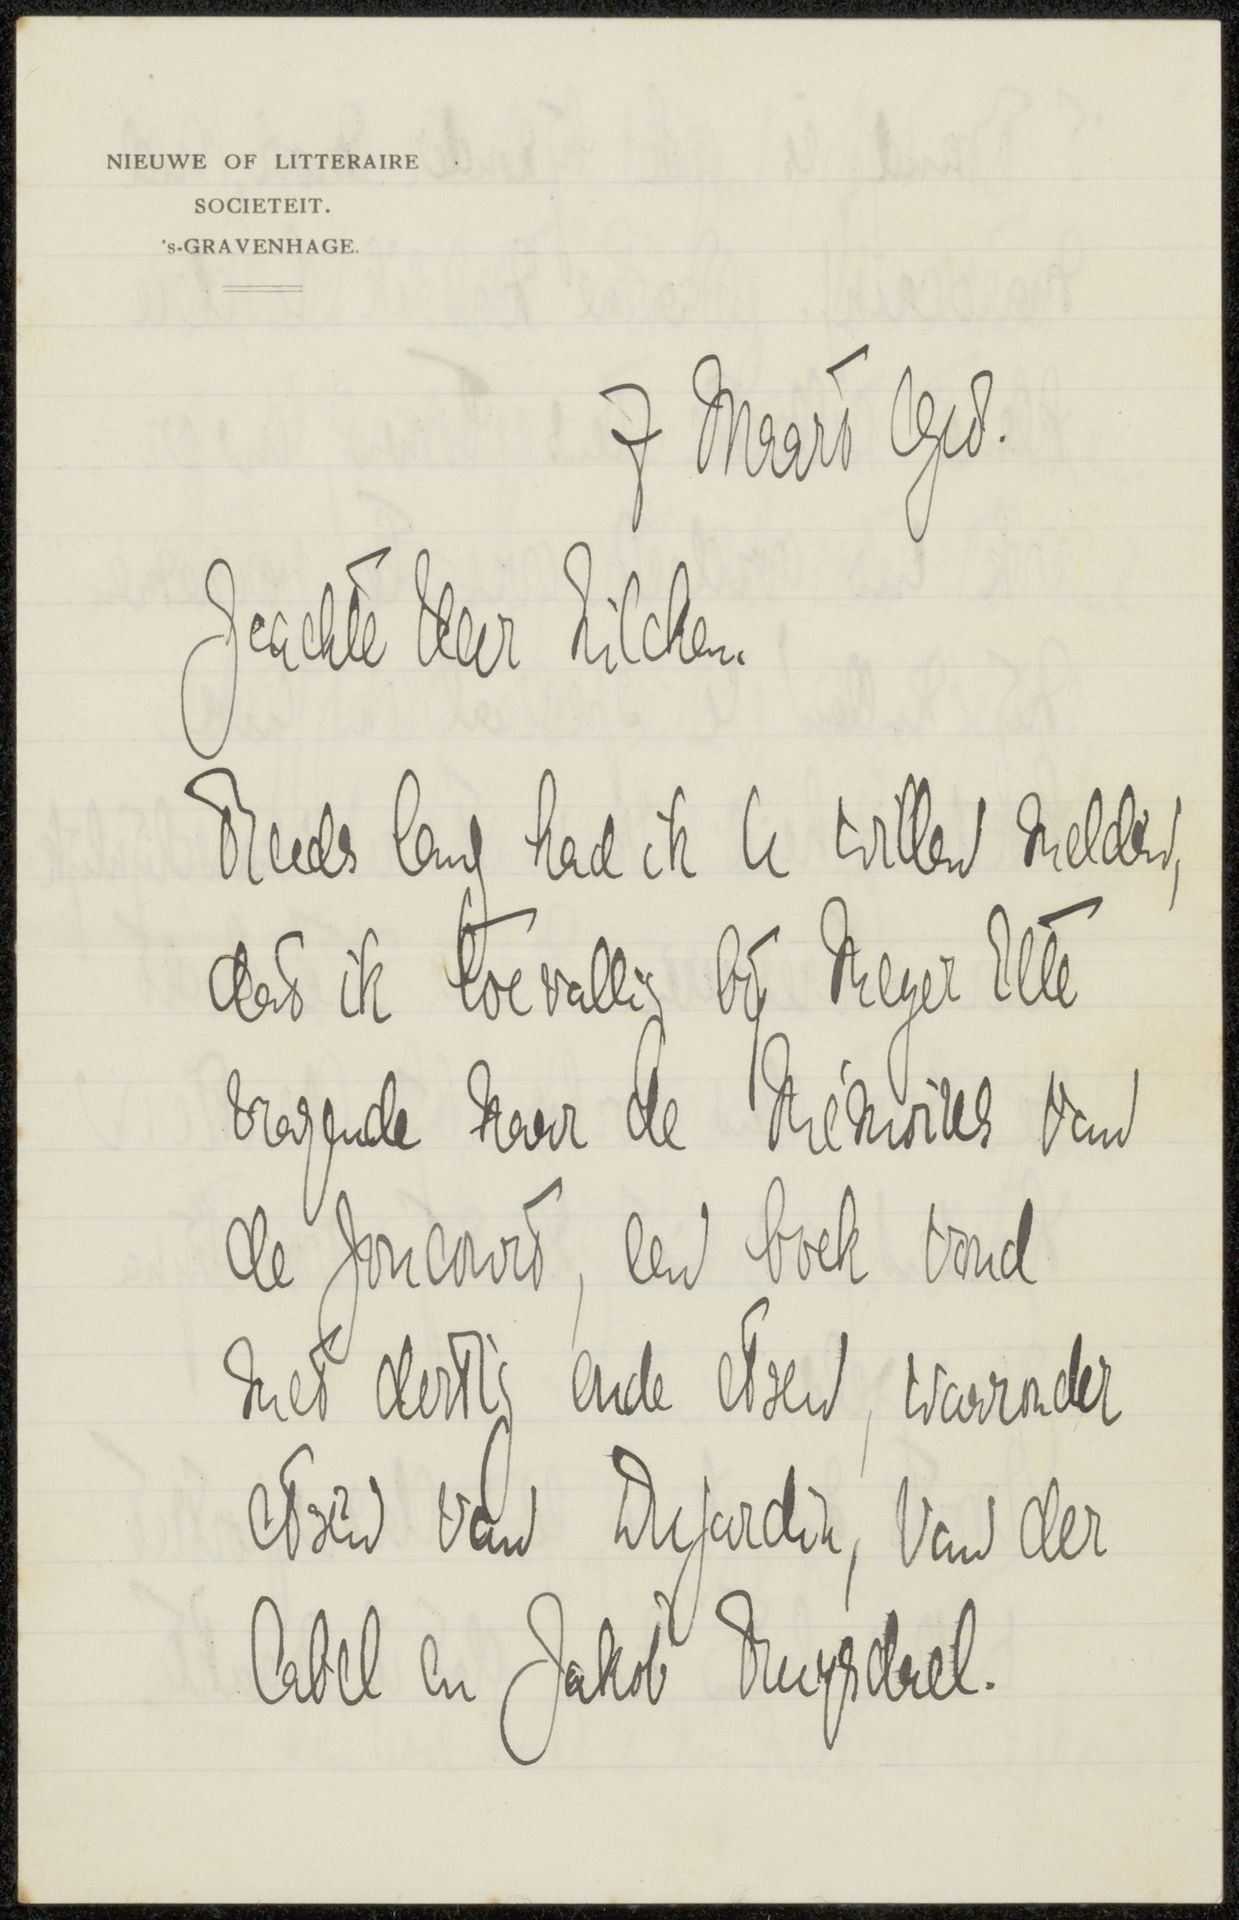 NIEUWE OF LITTERAIRE
SOCIETEIT.
's-GRAVENHAGE.
7 Maart
Geachte Heer Zilcken.
Reeds lang had ik U willen melden,
dat ik toevallig bij Meyer Elte
vragende naar de Mémoires van
de Goncourt, een boek vond
met dertig oude etsen, waaronder
etsen van Dujardin, Van der
Cabel en Jakob Ruysdael.